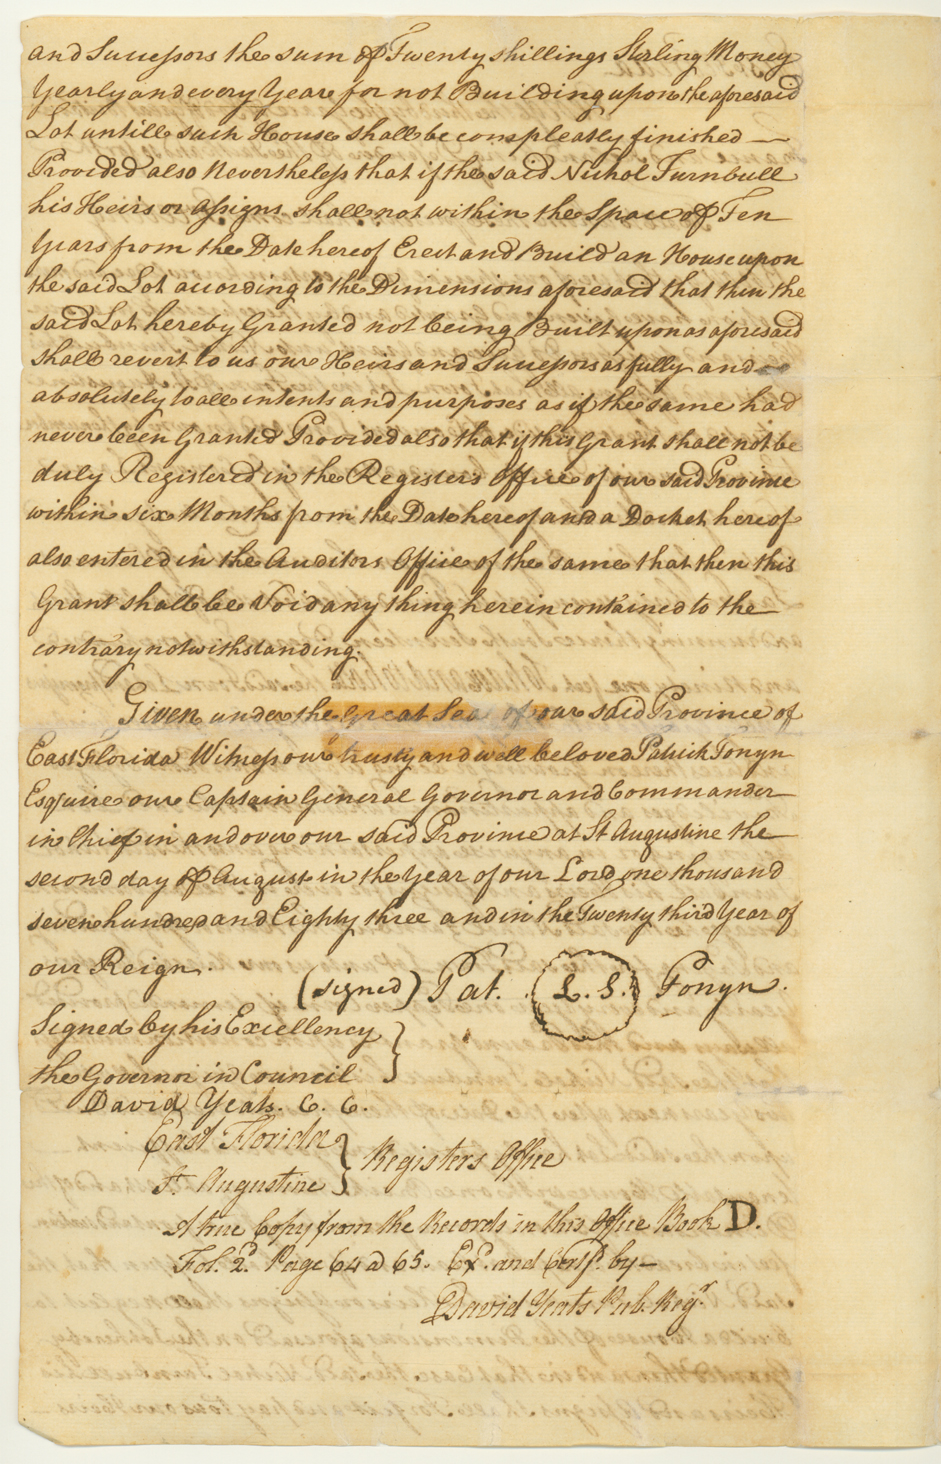 and Successors the sum of Twenty shillings Sterling Money
Yearly and every Year for not Building upon the aforesaid
Lot untill such House shall be compleatly finished —
Provided also Nevertheless that if the said Nichol Turnbull
his Heirs or Assigns shall not within the Space of Ten
Years from the Date hereof Erect and Build an House upon
the said Lot according to the Dimensions aforesaid that then the
said Lot hereby Granted not being Built upon as aforesaid
shall revert to us our Heirs and Successors as fully and
absolutely to all intents and purposes as if the same had
never been Granted Provided also that if this Grant shall not be
duly Registered in the Registers Office of our said Province
within six Months from the Date hereof and a Docket hereof
also entered in the Auditors Office of the same that then this
Grant shall be Void any thing herein contained to the
contrary notwithstanding.
Given under the Great Seal of our said Province of
East Florida Witness our trusty and well beloved Patrick Tonyn
Esquire our Captain General Governor and Commander
in Chief in and over our said Province at St Augustine the
second day of August in the Year of our Lord one thousand
seven hundred and Eighty three and in the Twenty third Year of
our Reign.
(signed) Pat. L. S. Tonyn.
Signed by his Excellency
the Governor in Council
David Yeats. C. C.
East Florida
St. Augustine } Registers Office
A true Copy from the Records in this Office Book D.
Fol. 2d. Page 64 @ 65. Exd. and Certifd. by —
David Yeats Pub. Regr.